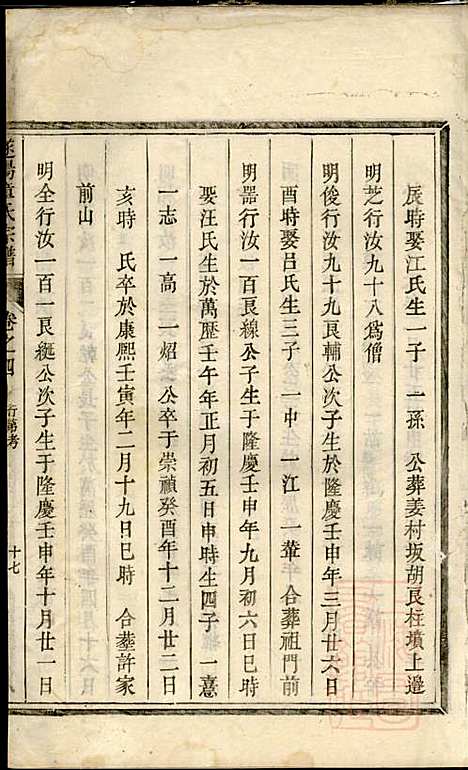 辰時娶江氏生一子 一孫 公葬姜村坂胡良柱墳上邊
明芝行汝九十八爲僧
明俊行汝九十九良輔公次子生於隆慶壬申年三月廿六日
酉時娶呂氏生三子 一中 一江 一葦 合葬祖門前
明器行汝一百良線公子生于隆慶壬申年九月初六日巳時
娶汪氏生於萬歷壬午年正月初五日申時生四子 一意
一志 一高 一炤 公卒于崇禎癸酉年十二月廿二日
亥時 氏卒於康熙壬寅年二月十九日巳時 合塟許家
前山
明全行汝一百一良綖公次子生于隆慶壬申年十月廿一日
遂昌童氏宗譜 卷之四 行第考 十七